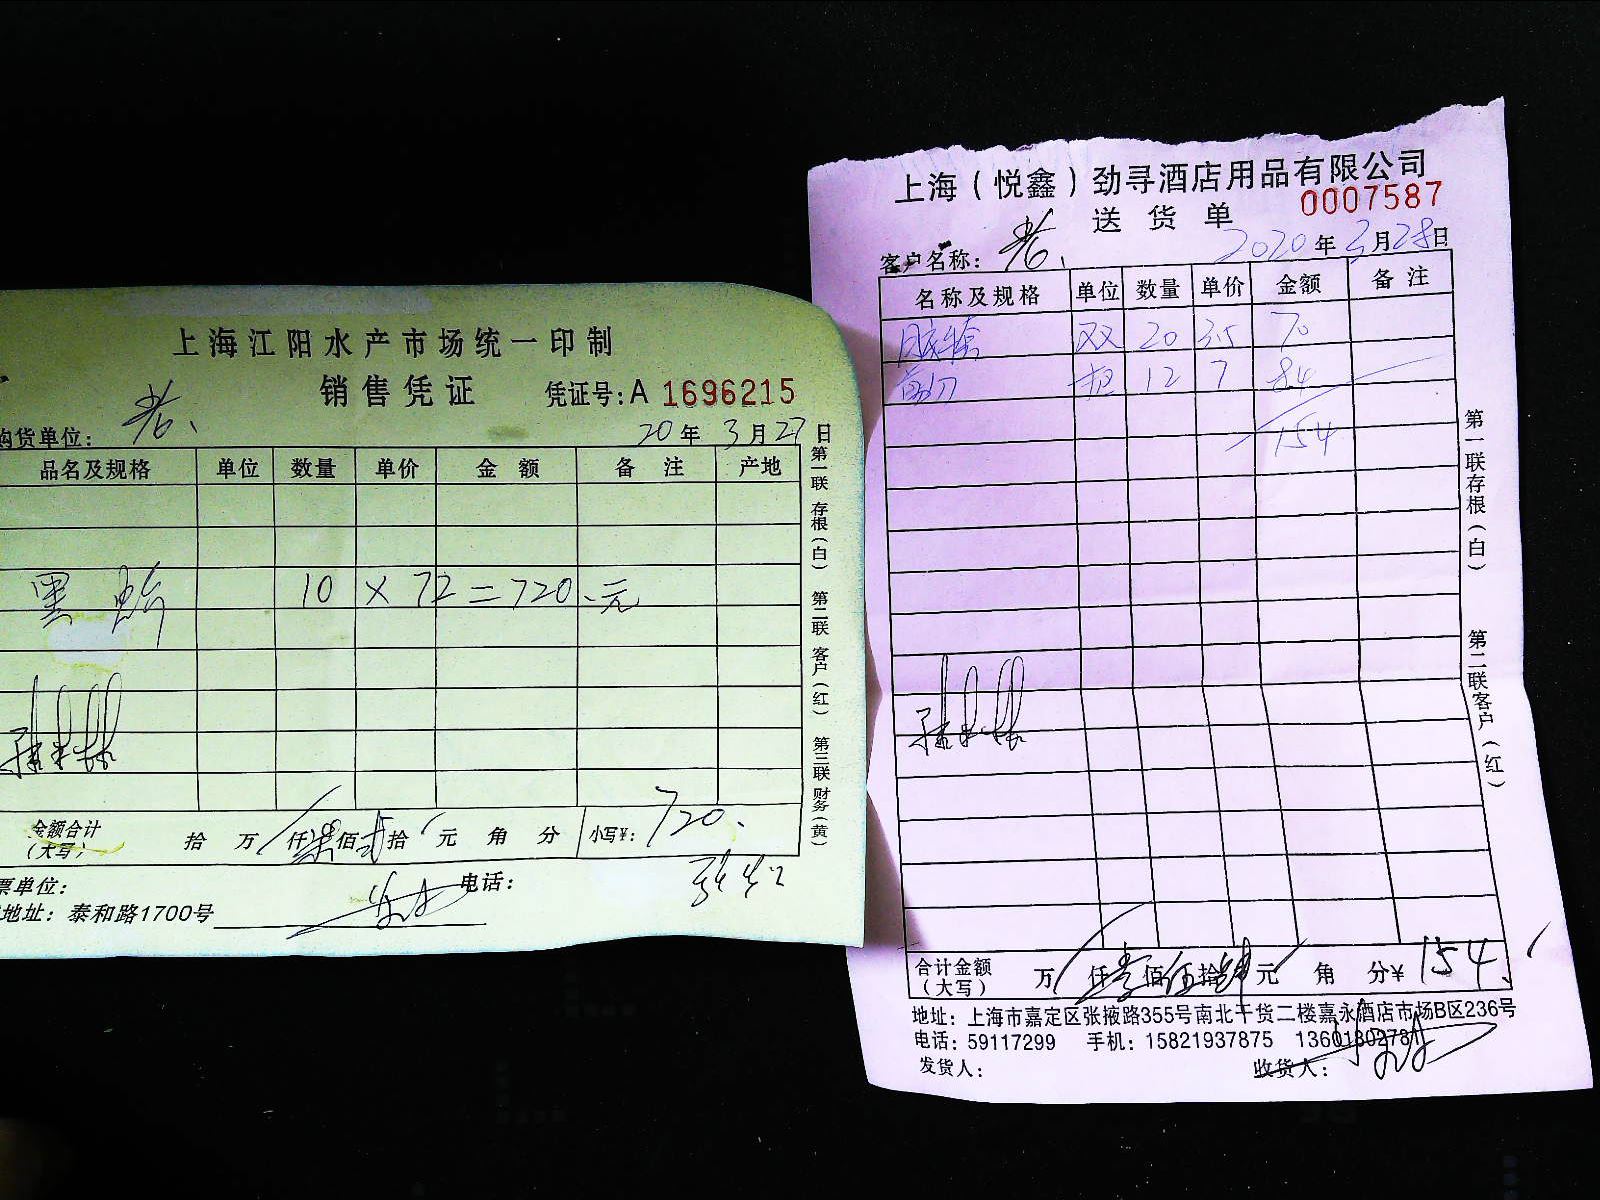 上海江阳水产市场统一印制
销售凭证 凭证号:A 1696215
购货单位:
20年3月27日
品名及规格 单位 数量 单价 金额 备注 产地
黑 10 × 72 = 720.元
金额合计 (大写) 拾 万 仟柒佰弍拾 元 角 分 小写¥: 720.
票单位: 电话:
地址: 泰和路1700号
第一联 存根(白) 第二联 客户(红) 第三联 财务(黄)
上海(悦鑫)劲寻酒店用品有限公司
送货单 0007587
客户名称:
2020年3月28日
名称及规格 单位 数量 单价 金额 备注
双 20 3.5 70
剪刀 把 12 7 84
154
合计金额 (大写) 万 仟壹佰伍拾肆元 角 分¥ 154
地址: 上海市嘉定区张掖路355号南北干货二楼嘉永酒店市场B区236号
电话: 59117299 手机: 15821937875 13601802781
发货人: 收货人:
第一联存根(白) 第二联客户(红)